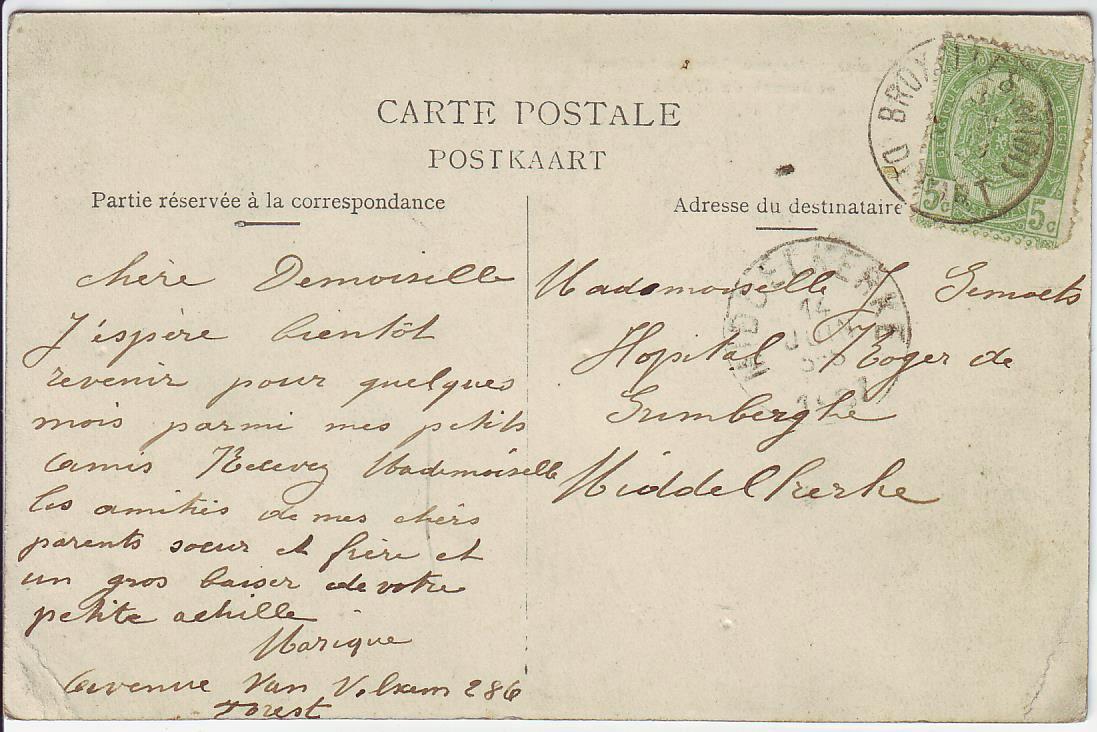 CARTE POSTALE
POSTKAART
Partie réservée à la correspondance
chère Demoiselle
J'éspère bientôt
revenir pour quelques
mois parmi mes petits
amis Recevez Mademoiselle
les amitiés de mes chèrs
parents soeur et frère et
un gros baiser de votre
petite achille
Marique
avenue Van Volxem 286
Forest
Adresse du destinataire
Mademoiselle J
Hopital Roger de
Grimberghe
Middelkerke
BRUXELLES
BELGIQUE
5c 5c
MIDDELKERKE
14
JUIN